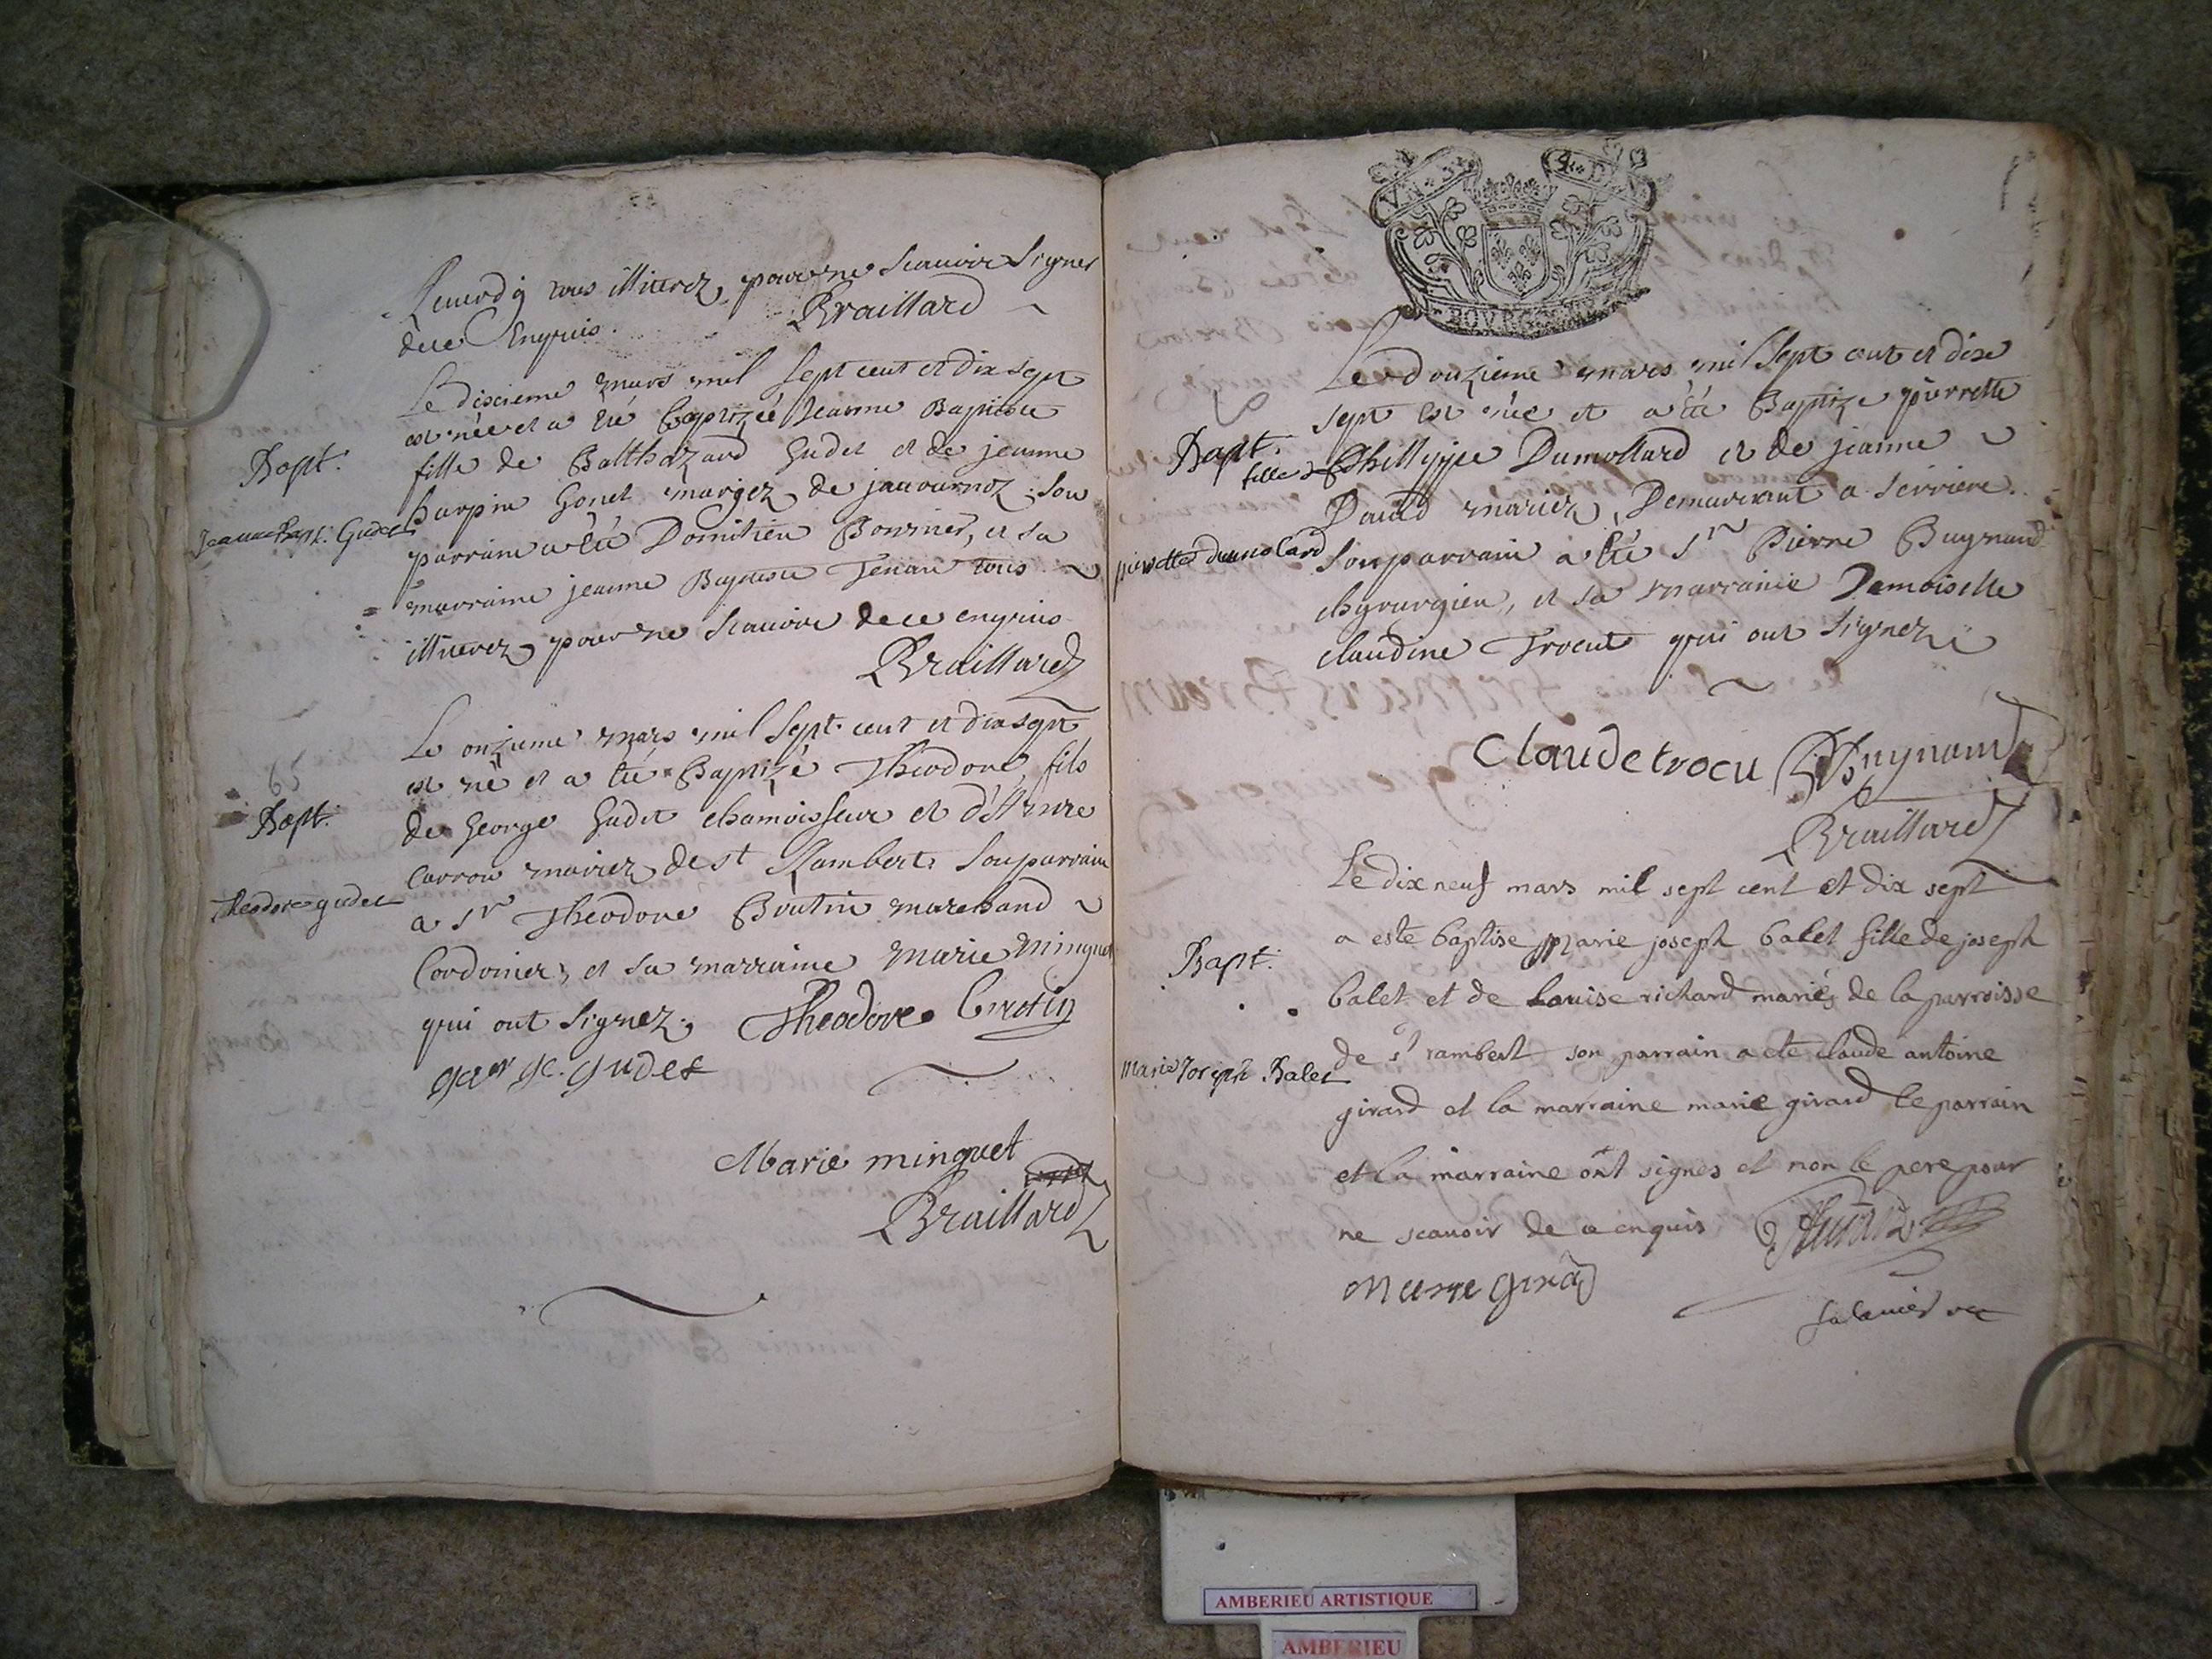 tous illiterez pour ne scauoir signer
de ce enquis. Braillard
Le dixieme mars mil sept cent et dix sept
est née et a été baptizée Jeanne Baptiste
fille de Balthazard Gudet et de jeanne
Bapt.
Gonet mariez de
Jeanne Bapt. Gudet
parrain a été Domitien et sa
marraine jeanne Baptiste Tenan tous
illiterez pour ne scauoir de ce enquis
Braillard
Le onzieme mars mil sept cent et dix sept
est né et a été Baptizé Theodore fils
65
Bapt.
de George Gudet chamoisseur et d'Anne
Carron mariez de st Rambert. Son parrain
Theodore gudet
a Sr Theodore Brutin marchand
Cordonier, et sa marraine Marie Minguet
qui ont signez. Theodore Brutin
ge. gudet
Marie minguet
Braillard
VN S
4 D
BOVRG
Le douzieme mars mil sept cent et dix
sept est née et a été Baptize pierrette
Bapt.
fille de Phillippe Dumollard et de jeanne
Dauid mariez, Demeurant a serriere.
pierrette dumolard
Son parrain a été Sr Pierre Buynand
chyrurgien, et sa marraine Demoiselle
claudine Trocut qui ont signez
Claude trocu Buynand
Braillard
Le dix neuf mars mil sept cent et dix sept
a este baptise marie joseph balet fille de joseph
Bapt.
balet et de Louise richard mariés de la parroisse
de st rambert son parrain a ete claude antoine
Marie Joseph Balet
girard et la marraine marie girard le parrain
et la marraine ont signes et non le pere pour
ne scauoir de ce enquis
Marie girard
AMBERIEU ARTISTIQUE
AMBERIEU